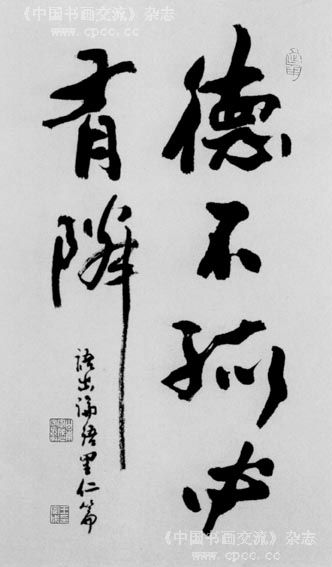 《中国书画交流》杂志
www.cpcc.cc
德不孤必
有隣
語出論語里仁篇
《中国书画交流》杂志
www.cpcc.cc